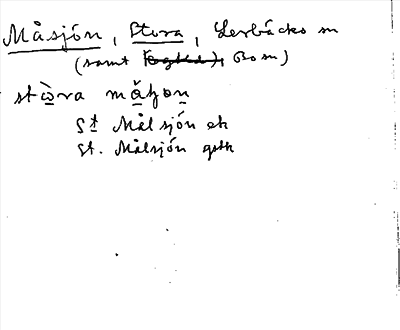 Måsjön, Stora, Lerbäcks sn
(samt Bo sn)
stòra måʃon
St Målsjön ek
St. Målsjön gstk